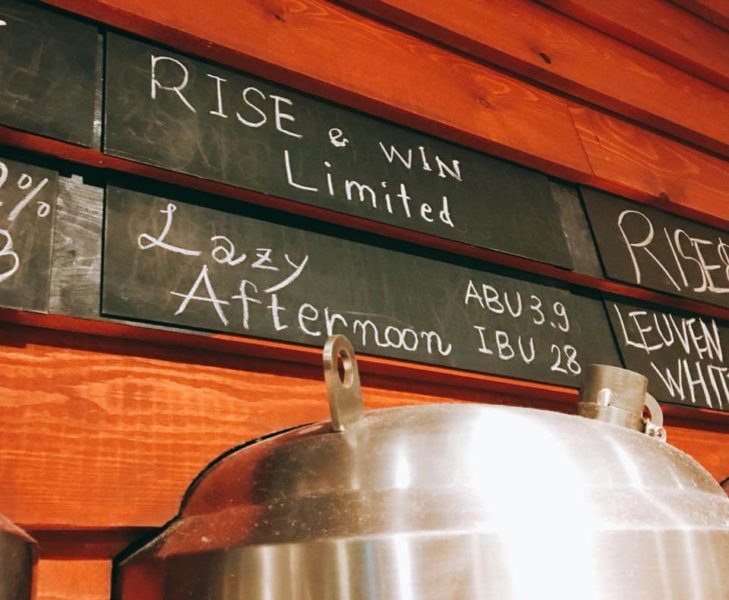 RISE & WIN
Limited
Lazy
Afternoon
ABU 3.9
IBU 28
2%
3
RISE&
LEUVEN
WHIT